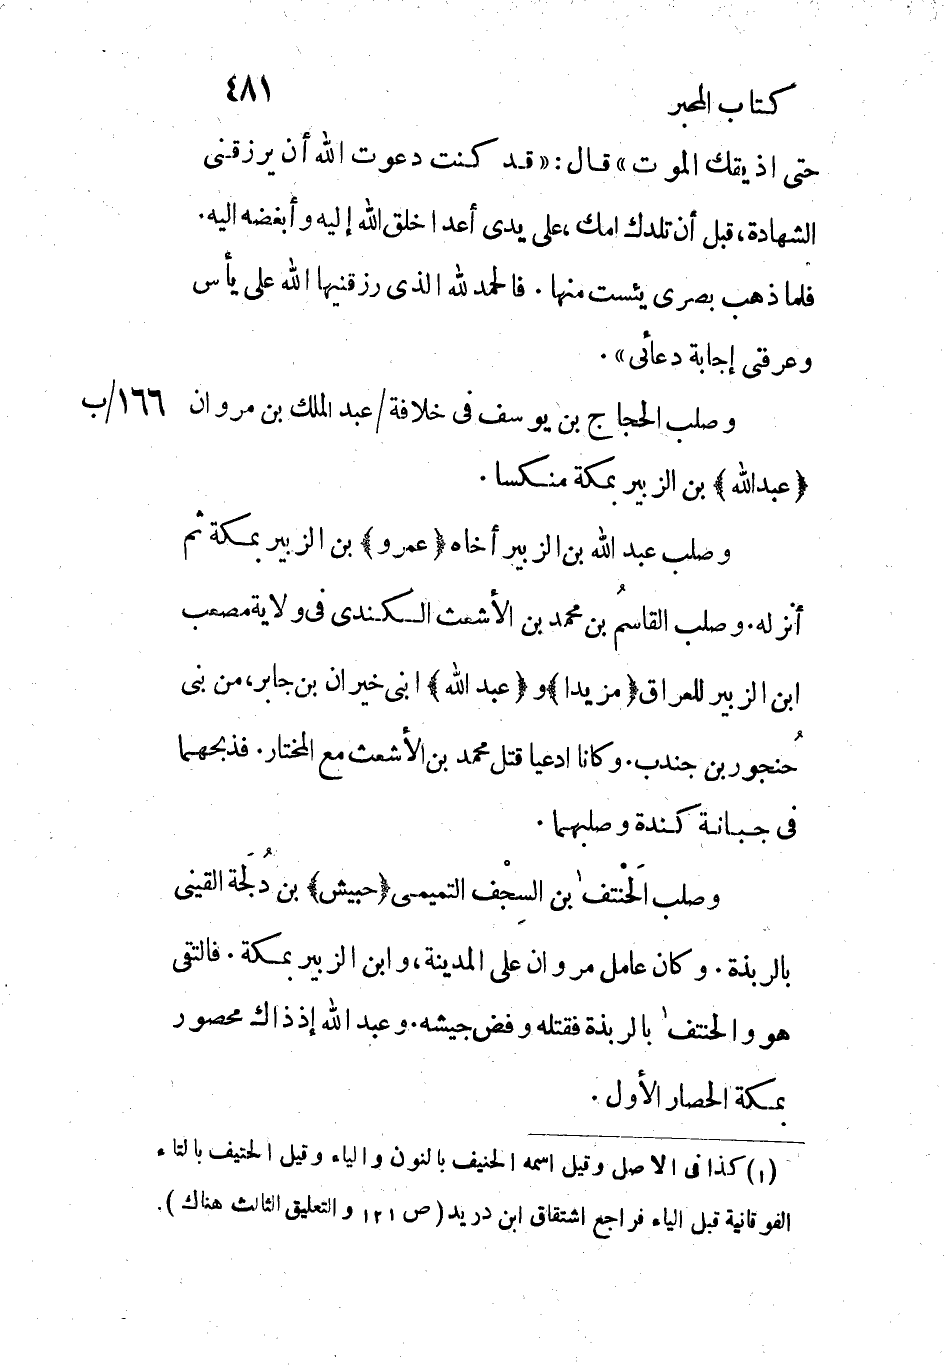 كتاب المحبر ٤٨١
حتى اذيقك الموت» قال: «قد كنت دعوت الله أن يرزقنى
الشهادة، قبل أن تلدك امك، على يدى أعدا خلق الله إليه و أبغضه اليه.
فلما ذهب بصرى يئست منها. فالحمد لله الذى رزقنيها الله على يأس
وعرقنى إجابة دعائى».
وصلب الحجاج بن يوسف فى خلافة/عبد الملك بن مروان ١٦٦/ب
﴿عبدالله﴾ بن الزبير بمكة منكسا.
وصلب عبد الله بن الزبير أخاه ﴿عمرو﴾ بن الزبير بمكة ثم
أنزله. وصلب القاسمُ بن محمد بن الأشعث الكندى فى ولاية مصعب
ابن الزبير للعراق ﴿مزيدا﴾ و ﴿عبد الله﴾ ابنى خيران بن جابر، من بنى
حُنجور بن جندب. وكانا ادعيا قتل محمد بن الأشعث مع المختار. فذبحهما
فى جبانة كندة وصلبهما.
وصلب الحَنْتف¹ بن السِجْف التميمى ﴿حبيش﴾ بن دُلَجة القينى
بالربذة. وكان عامل مروان على المدينة، و ابن الزبير بمكة. فالتقى
هو و الحنتف¹ بالربذة فقتله وفض جيشه. وعبد الله إذ ذاك محصور
بمكة الحصار الأول.
(١) كذا فى الاصل وقيل اسمه الحنيف بالنون والياء وقيل الحتيف بالتاء
الفوقانية قبل الياء فراجع اشتقاق ابن دريد (ص ١٢١ و التعليق الثالث هناك).